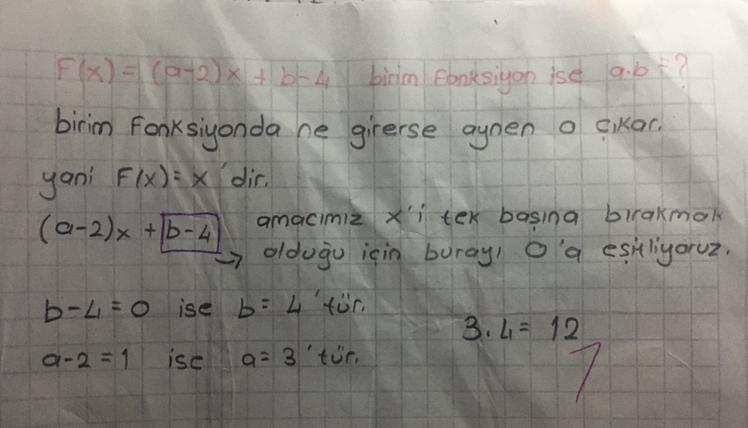 F(x) = (a-2)x + b-4 birim fonksiyon ise a.b=?
birim fonksiyonda ne girerse aynen o çıkar.
yani F(x)= x'dir.
(a-2)x + b-4 amacımız x'i tek başına bırakmak
→ olduğu için burayı 0'a eşitliyoruz.
b-4=0 ise b= 4'tür.
3.4= 12
a-2=1 ise a=3'tür.